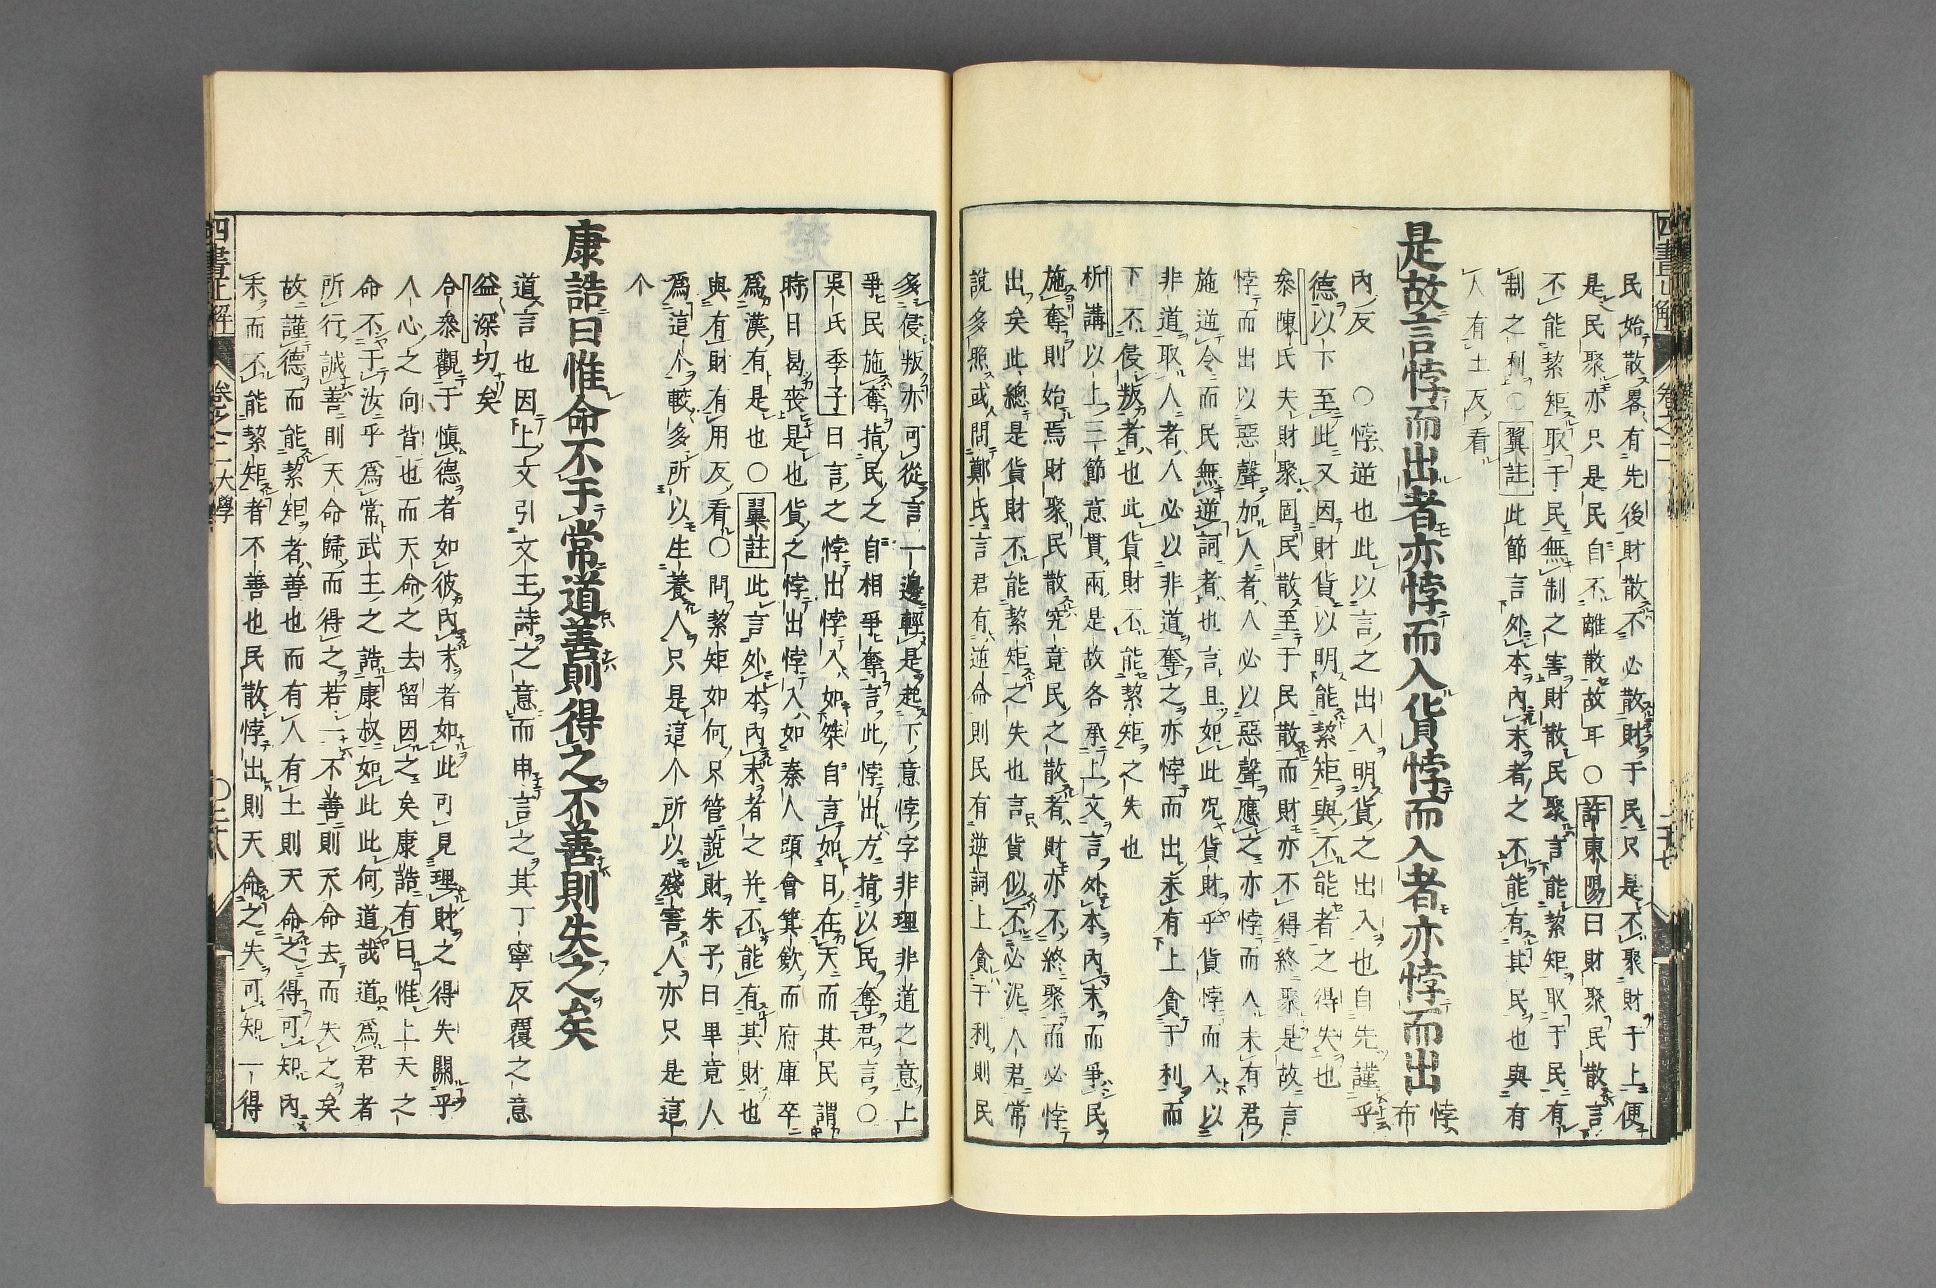 民始散畧有先後財散不必散財于民只是不聚財于上便
是民聚亦只是民自不離散故耳○許東陽曰財聚民散言
不能絜矩取于民無制之害財散民聚言能絜矩取于民有
制之利○翼註此節言外本內末者之不能有其民也與有
人有土反看
是故言悖而出者亦悖而入貨悖而入者亦悖而出悖布
內反○悖逆也此以言之出入明貨之出入也自先謹乎
德以下至此又因財貨以明能絜矩與不能者之得失也
參陳氏夫財聚固民散至于民散而財亦不得終聚是故言
悖而出以惡聲加人者人必以惡聲應之亦悖而入未有君
施逆令而民無逆詞者也言且如此况貨財乎貨悖而入以
非道取人者人必以非道奪之亦悖而出未有上貪于利而
下不侵叛者也此貨財不能絜矩之失也
析講以上三節意貫兩是故各承上文言外本內末而爭民
施奪則始焉財聚民散究竟民之散者財亦不終聚而必悖
出矣此總是貨財不能絜矩之失也言貨似不必泥人君常
說多照或問鄭氏言君有逆命則民有逆詞上貪于利則民
多侵叛亦可從言一邊輕是起下意悖字非理非道之意上
爭民施奪指民之自相爭奪言此悖出方指以民奪君言○
吳氏季子曰言之悖出悖入如桀自言如日在天而其民謂
時日曷喪是也貨之悖出悖入如秦人頭會箕歛而府庫卒
爲漢有是也○翼註此言外本內末者之并不能有其財也
與有財有用反看○問絜矩如何只管說財朱子曰畢竟人
爲這个較多所以生養人只是這个所以殘害人亦只是這
个
康誥曰惟命不于常道善則得之不善則失之矣
道言也因上文引文王詩之意而申言之其丁寧反覆之意
益深切矣
合參觀于慎德者如彼內末者如此可見理財之得失關乎
人心之向背也而天命之去留因之矣康誥有曰惟上天之
命不于汝乎爲常武王之誥康叔如此此何道哉道爲君者
所行誠善則天命歸而得之若一不善則天命去而失之矣
故謹德而能絜矩者善也而有人有土則天命之得可知內
末而不能絜矩者不善也民散悖出則天命之失可知一得
四書正解
卷之二
二十七
四書正解
卷之二 大學
○二十八